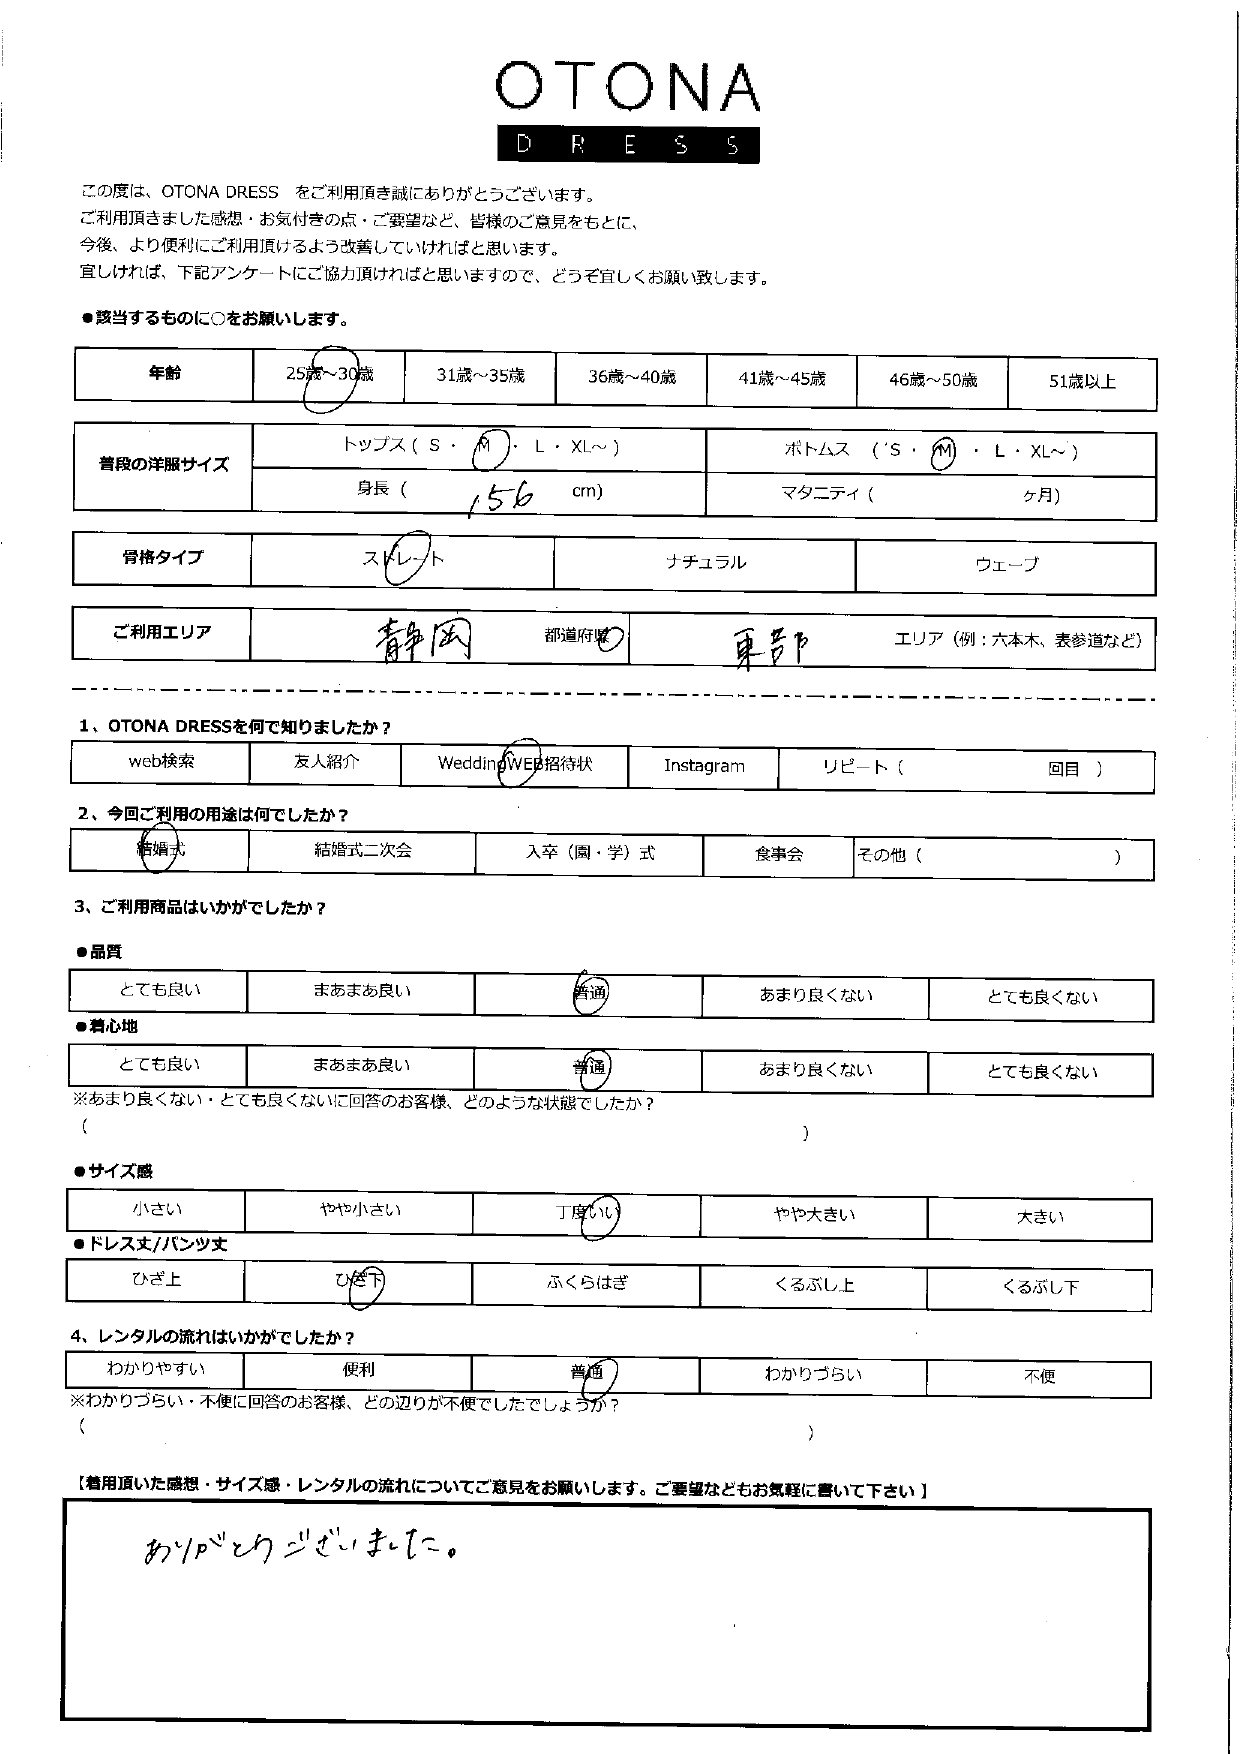 OTONA
DRESS
この度は、OTONA DRESS をご利用頂き誠にありがとうございます。
ご利用頂きました感想・お気付きの点・ご要望など、皆様のご意見をもとに、
今後、より便利にご利用頂けるよう改善していければと思います。
宜しければ、下記アンケートにご協力頂ければと思いますので、どうぞ宜しくお願い致します。
●該当するものに○をお願いします。
年齢 25歳～30歳 31歳～35歳 36歳～40歳 41歳～45歳 46歳～50歳 51歳以上
普段の洋服サイズ トップス ( S ・ M ・ L ・ XL～ ) ボトムス ( S ・ M ・ L ・ XL～ )
身長 ( 156 cm) マタニティ ( ヶ月)
骨格タイプ ストレート ナチュラル ウェーブ
ご利用エリア 静岡 都道府県 東部 エリア（例：六本木、表参道など）
1、OTONA DRESSを何で知りましたか？
web検索 友人紹介 WeddingWEB招待状 Instagram リピート ( 回目 )
2、今回ご利用の用途は何でしたか？
結婚式 結婚式二次会 入卒（園・学）式 食事会 その他 ( )
3、ご利用商品はいかがでしたか？
●品質
とても良い まあまあ良い 普通 あまり良くない とても良くない
●着心地
とても良い まあまあ良い 普通 あまり良くない とても良くない
※あまり良くない・とても良くないに回答のお客様、どのような状態でしたか？
( )
●サイズ感
小さい やや小さい 丁度いい やや大きい 大きい
●ドレス丈/パンツ丈
ひざ上 ひざ下 ふくらはぎ くるぶし上 くるぶし下
4、レンタルの流れはいかがでしたか？
わかりやすい 便利 普通 わかりづらい 不便
※わかりづらい・不便に回答のお客様、どの辺りが不便でしたでしょうか？
( )
【着用頂いた感想・サイズ感・レンタルの流れについてご意見をお願いします。ご要望などもお気軽に書いて下さい】
ありがとうございました。